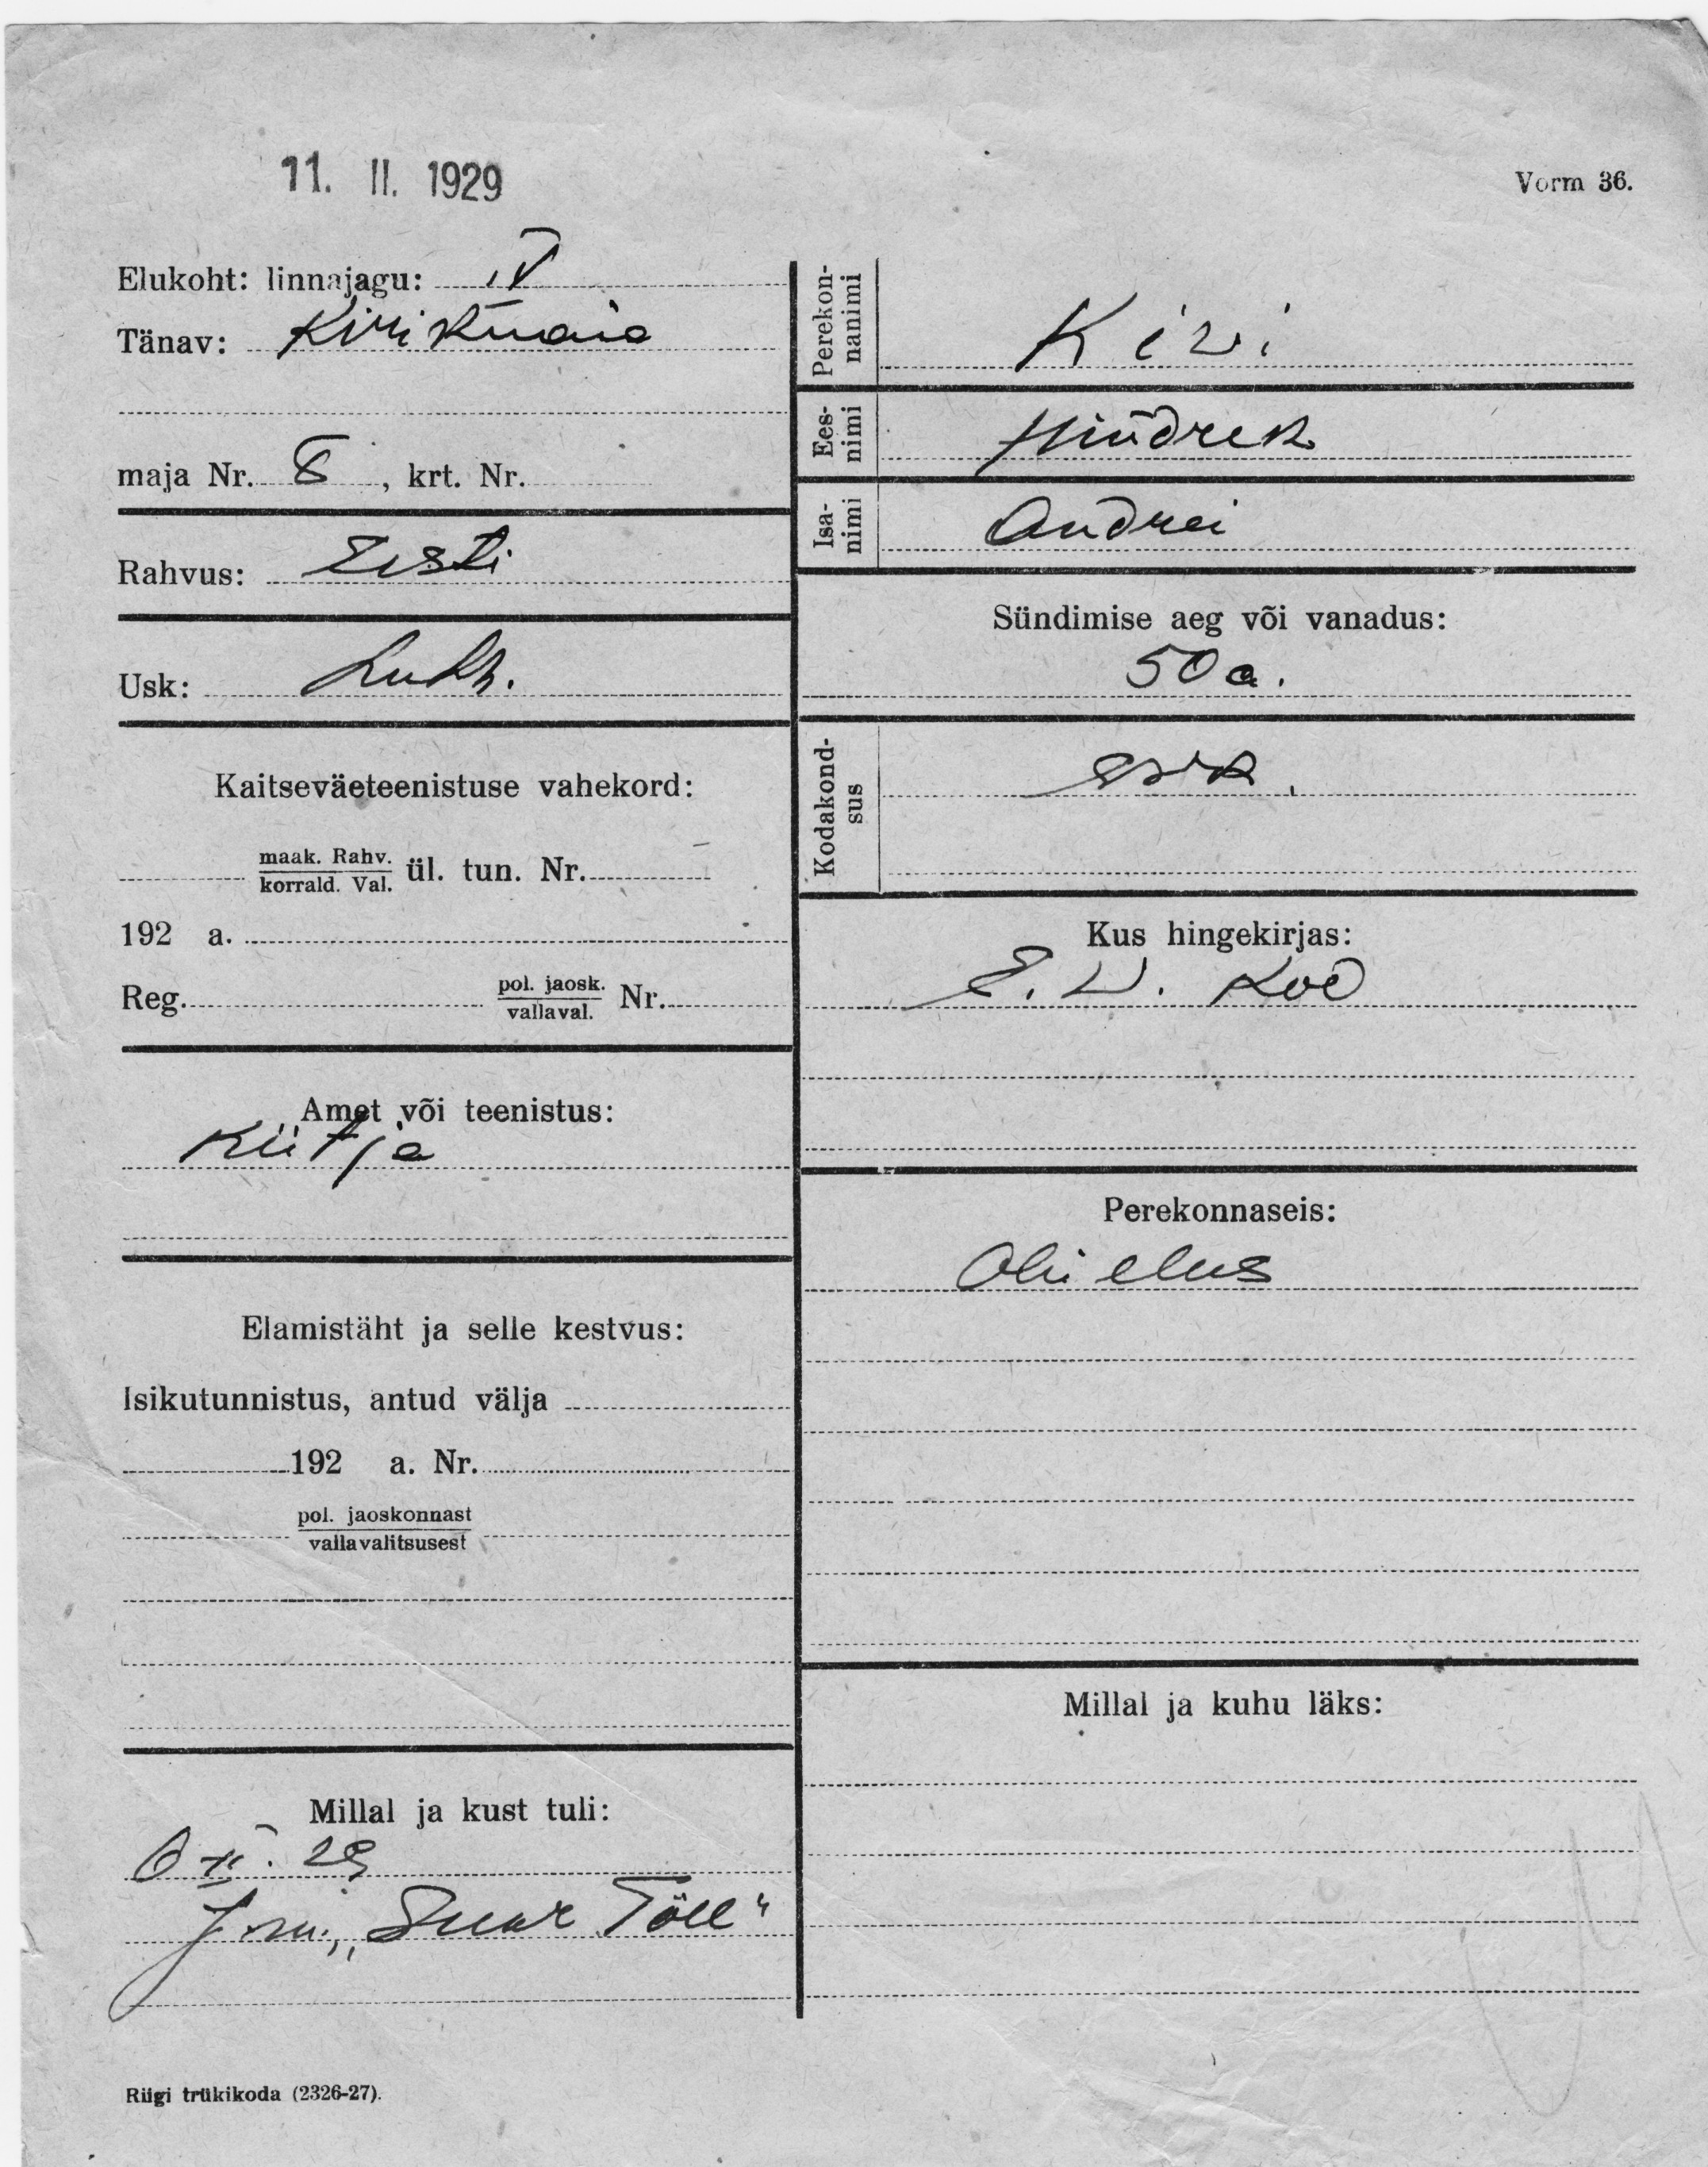 11. II. 1929
Vorm 36.
Elukoht: linnajagu: IV
Tänav: Kirikmaia
maja Nr. 8, krt. Nr.
Rahvus: Eesti
Usk: Luth.
Kaitseväeteenistuse vahekord:
maak. Rahv.
korrald. Val.
ül. tun. Nr.
192 a.
Reg. pol. jaosk. Nr.
vallaval.
Amet või teenistus:
Kütja
Elamistäht ja selle kestvus:
Isikutunnistus, antud välja
192 a. Nr.
pol. jaoskonnast
vallavalitsusest
Millal ja kust tuli:
29
"Suur Tõll"
Riigi trükikoda (2326-27).
Perekon-
nanimi
Kivi
Ees-
nimi
Hindrek
Isa-
nimi
Andrei
Sündimise aeg või vanadus:
50 a.
Kodakond-
sus
Kus hingekirjas:
E. W. Koo
Perekonnaseis:
Oli elus
Millal ja kuhu läks: